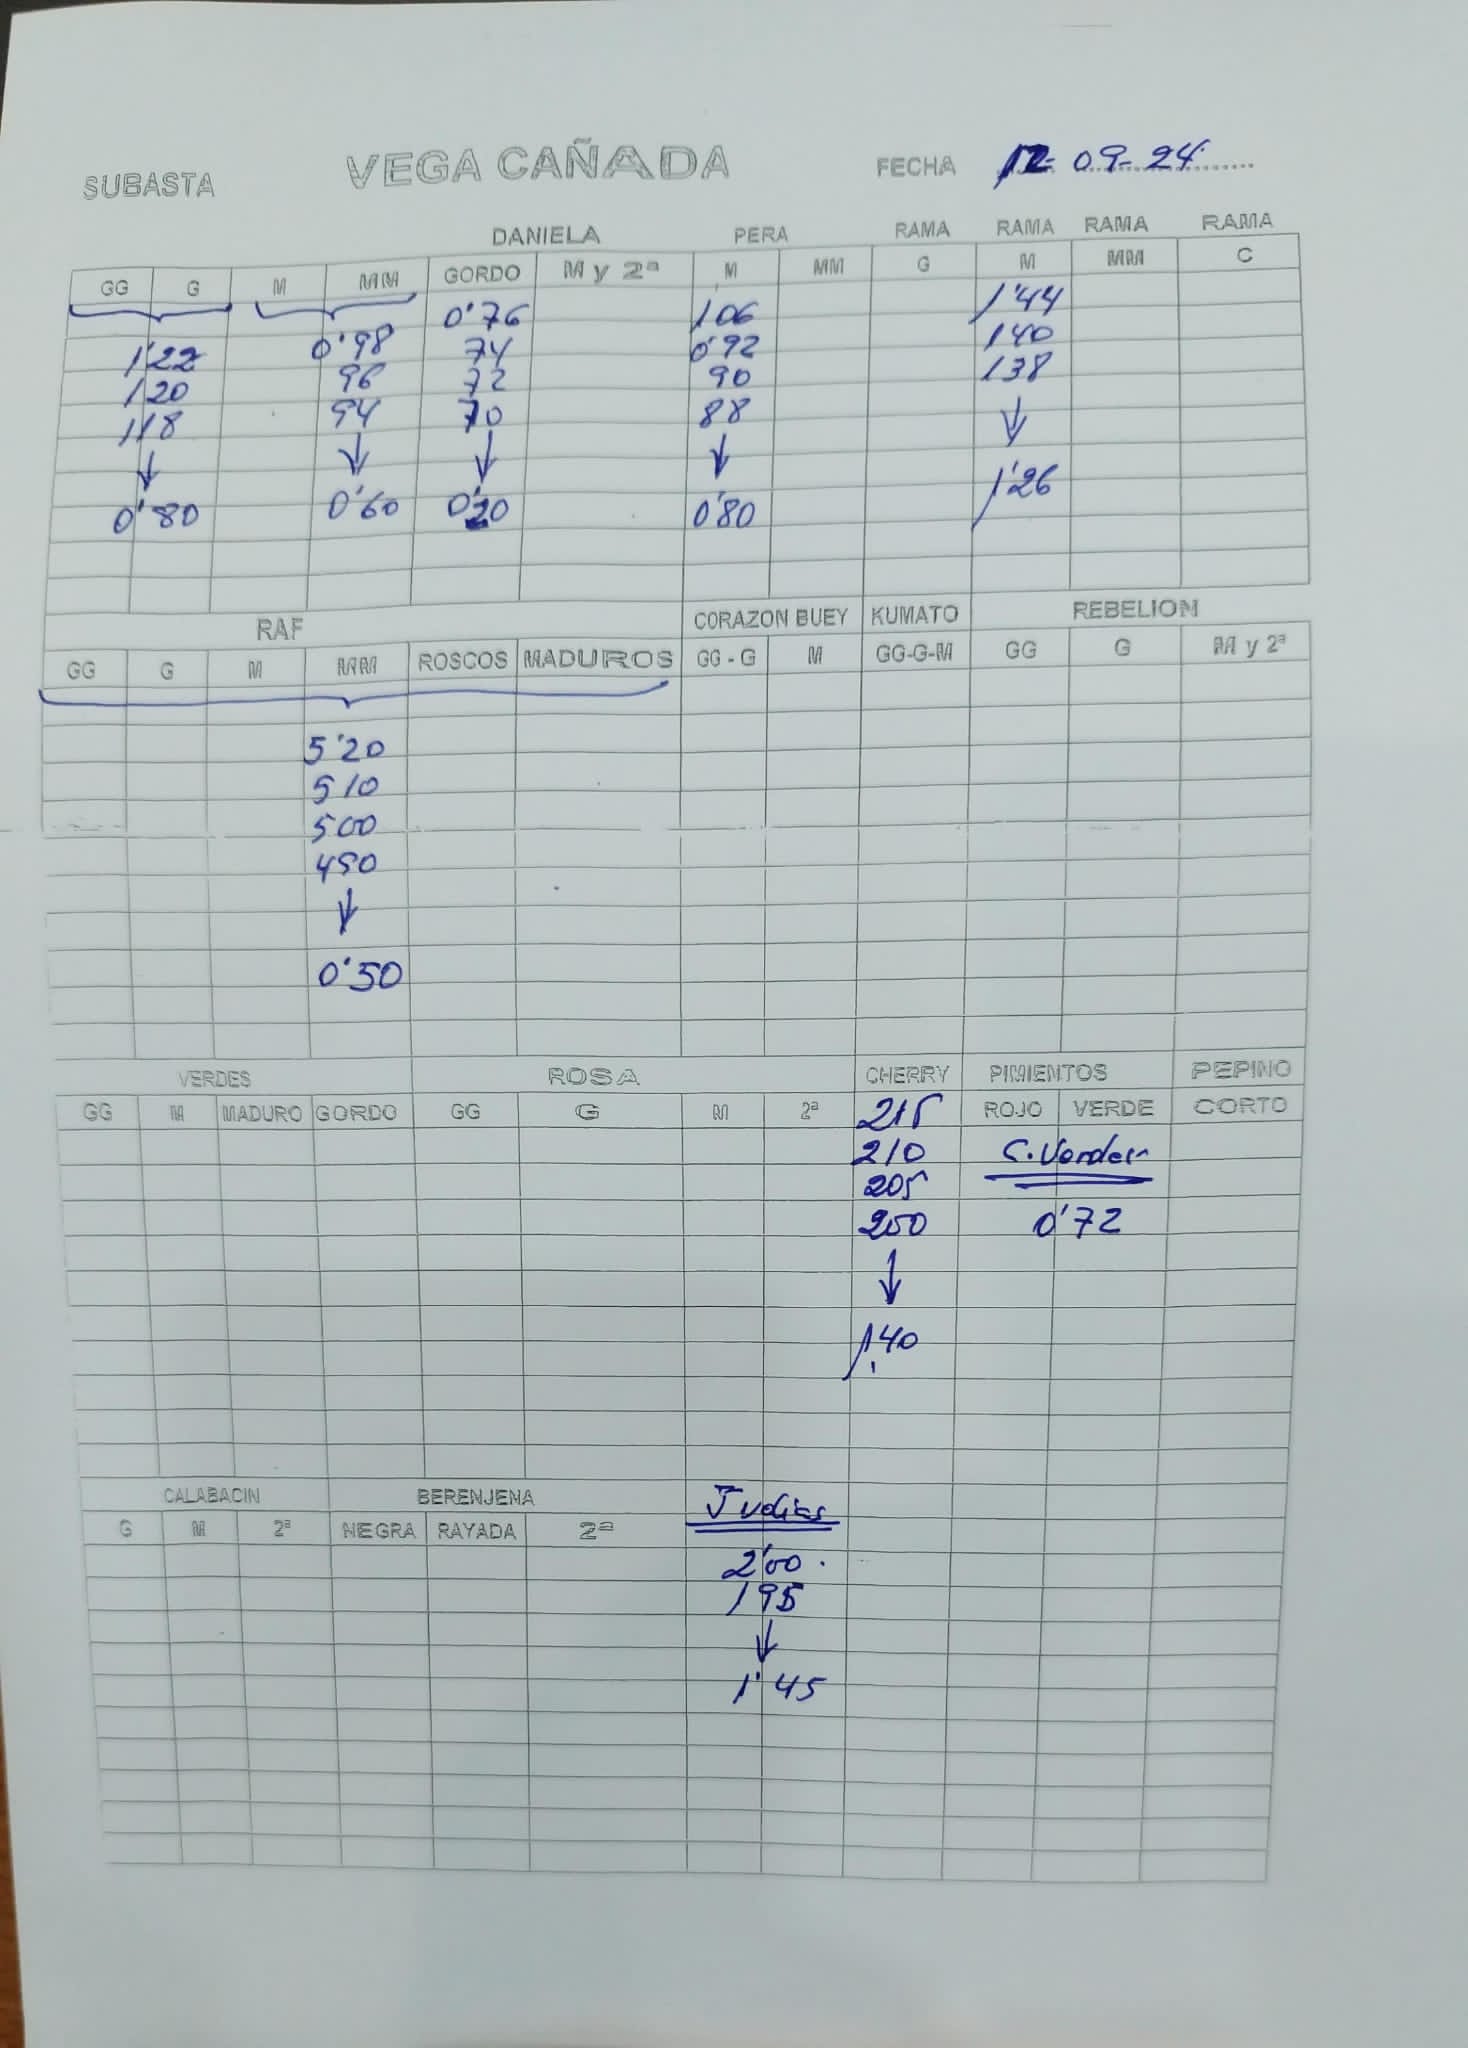 SUBASTA VEGA CAÑADA FECHA 12-09-24
DANIELA PERA RAMA RAMA RAMA RAMA
GG G M MM GORDO M y 2ª M MM G M MM C
0'76 106 1'44
1'22 0'98 74 0'92 140
120 96 72 90 138
118 94 70 88
0'80 0'60 0'20 0'80 1'26
RAF CORAZON BUEY KUMATO REBELION
GG G M MM ROSCOS MADUROS GG - G M GG-G-M GG G M y 2ª
5'20
510
500
490
0'50
VERDES ROSA CHERRY PIMIENTOS PEPINO
GG M MADURO GORDO GG G M 2ª 215 ROJO VERDE CORTO
210 C. Verdes
205
200 0'72
1,40
CALABACIN BERENJENA Judias
G M 2ª NEGRA RAYADA 2ª
2'00
195
1'45